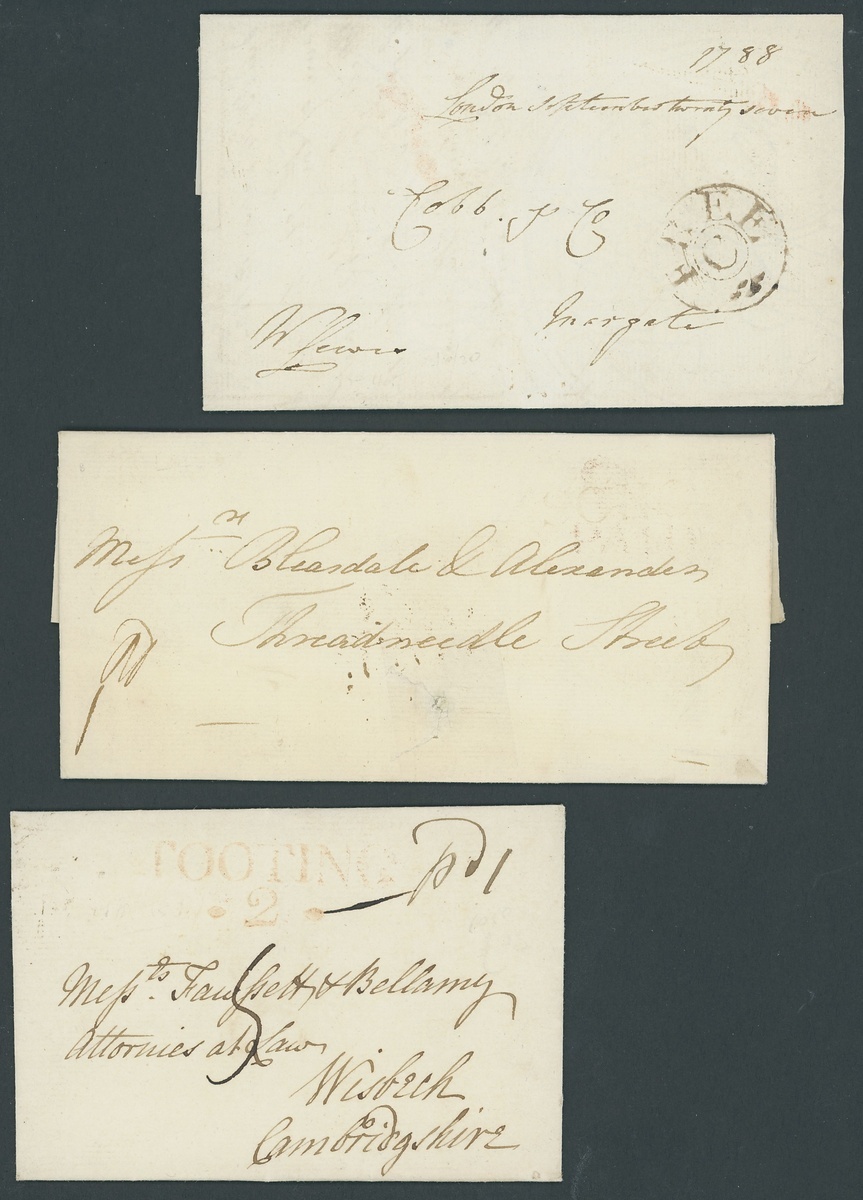 1788
London September twenty seven
Cobb & Co
FREE
Margate
W Lewis
Messrs Bleasdale & Alexander
Threadneedle Street
pd
1
TOOTING
2
pd 1
Messts. Faussett & Bellamy
5
Attornies at Law
Wisbech
Cambridgshire